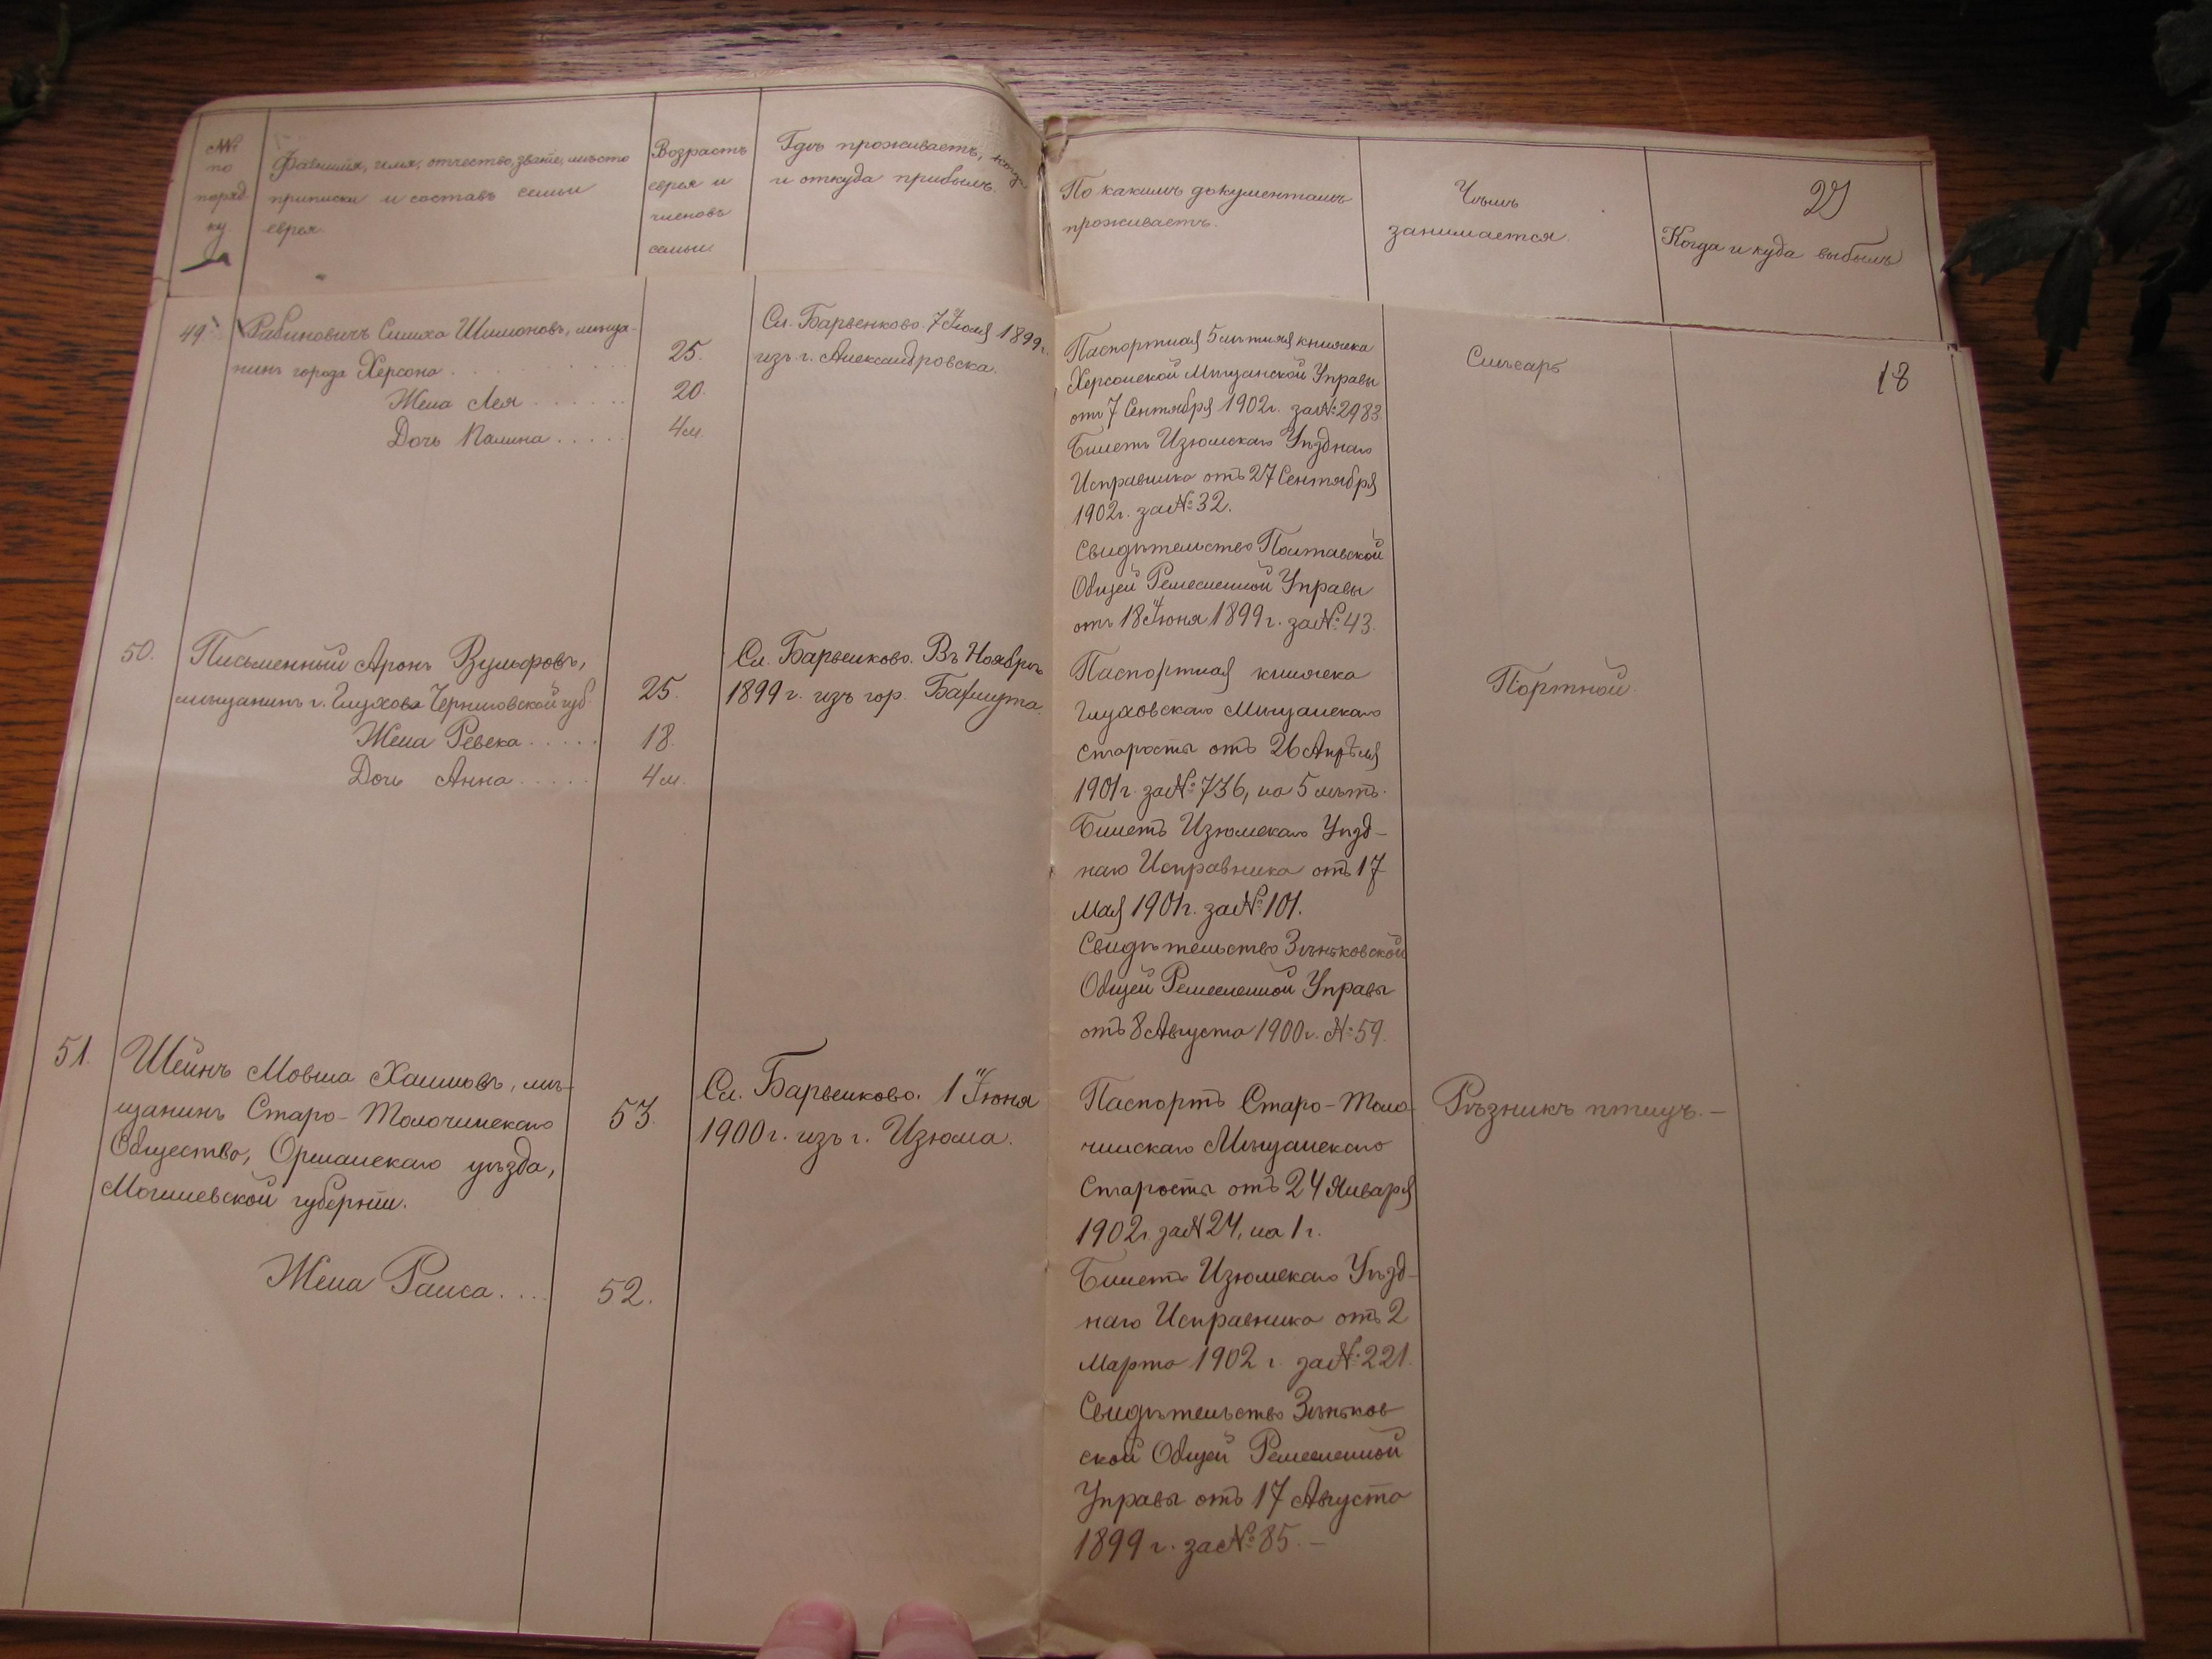 №№ по порядку
Фамилия, имя, отчество, званіе, мѣсто
приписки и составъ семьи
еврея.
Возрастъ
еврея и
членовъ
семьи
Гдѣ проживаетъ, когда
и откуда прибылъ.
По какимъ документамъ
проживаетъ.
Чѣмъ
занимается.
Когда и куда выбылъ
18
49.
Рабиновичъ Симха Шимоновъ, мѣща-
нинъ города Херсона
25.
Жена Лея
20.
Дочь Палина
4м.
Сл. Барвенково. 7 Іюля 1899г.
изъ г. Александровска.
Паспортная 5 лѣтняя книжка
Херсонской Мѣщанской Управы
отъ 7 Сентября 1902г. за № 2983.
Билетъ Изюмскаго Уѣзднаго
Исправника отъ 27 Сентября
1902г. за № 32.
Свидѣтельство Полтавской
Общей Ремесленной Управы
отъ 18 Іюня 1899г. за № 43.
Слѣсарь
50.
Письменный Аронъ Вульфовъ,
мѣщанинъ г. Глухова Черниговской губ.
25.
Жена Ревека
18.
Дочь Анна
4м.
Сл. Барвенково. Въ Ноябрѣ
1899 г. изъ гор. Бахмута.
Паспортная книжка
Глуховскаго Мѣщанскаго
Старосты отъ 26 Апрѣля
1901г. за № 736, на 5 лѣтъ.
Билетъ Изюмскаго Уѣзд-
наго Исправника отъ 17
Мая 1901г. за № 101.
Свидѣтельство Зѣньковской
Общей Ремесленной Управы
отъ 8 Августа 1900г. № 59.
Портной.
51.
Шейнъ Мовша Хаимовъ, мѣ-
щанинъ Старо-Толочинскаго
Общества, Оршанскаго уѣзда,
Могилевской губерніи.
53.
Жена Раиса
52.
Сл. Барвенково. 1 Іюня
1900 г. изъ г. Изюма.
Паспортъ Старо-Толо-
чинскаго Мѣщанскаго
Старосты отъ 24 Января
1902г. за № 24, на 1 г.
Билетъ Изюмскаго Уѣзд-
наго Исправника отъ 2
Марта 1902 г. за № 221.
Свидѣтельство Зѣньков
ской Общей Ремесленной
Управы отъ 17 Августа
1899 г. за № 85. –
Рѣзникъ птицъ. –